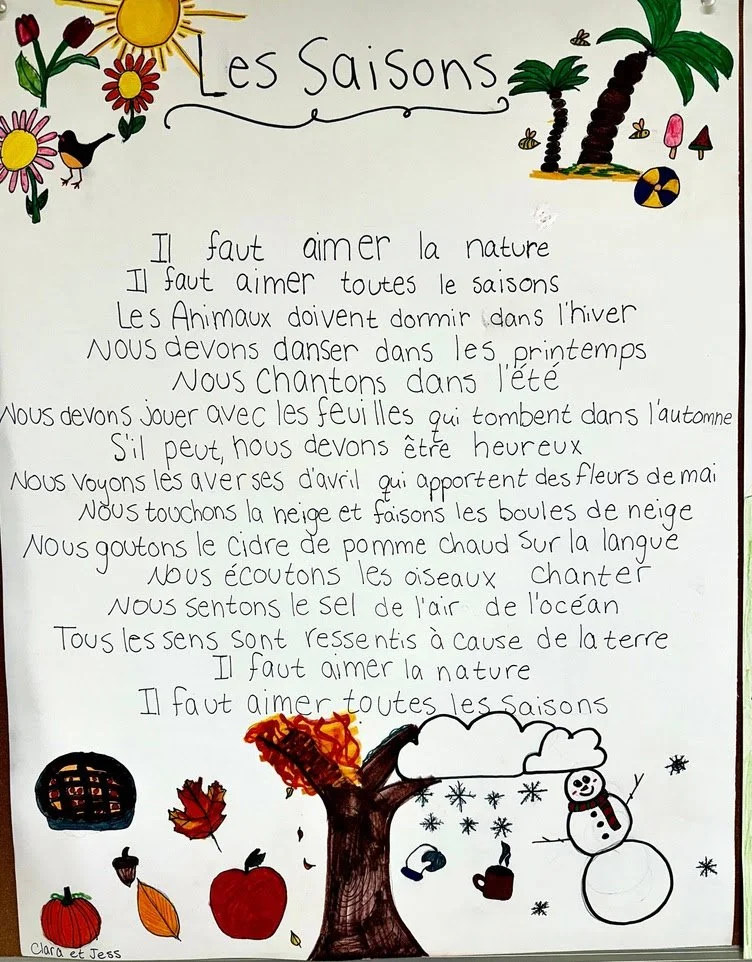 Les Saisons
Il faut aimer la nature
Il faut aimer toutes le saisons
Les Animaux doivent dormir dans l'hiver
Nous devons danser dans les printemps
Nous Chantons dans l'été
Nous devons jouer avec les feuilles qui tombent dans l'automne
S'il peut, nous devons être heureux
Nous voyons les averses d'avril qui apportent des fleurs de mai
Nous touchons la neige et faisons les boules de neige
Nous goutons le cidre de pomme chaud sur la langue
Nous écoutons les oiseaux chanter
Nous sentons le sel de l'air de l'océan
Tous les sens sont ressentis à cause de la terre
Il faut aimer la nature
Il faut aimer toutes les saisons
Clara et Jess